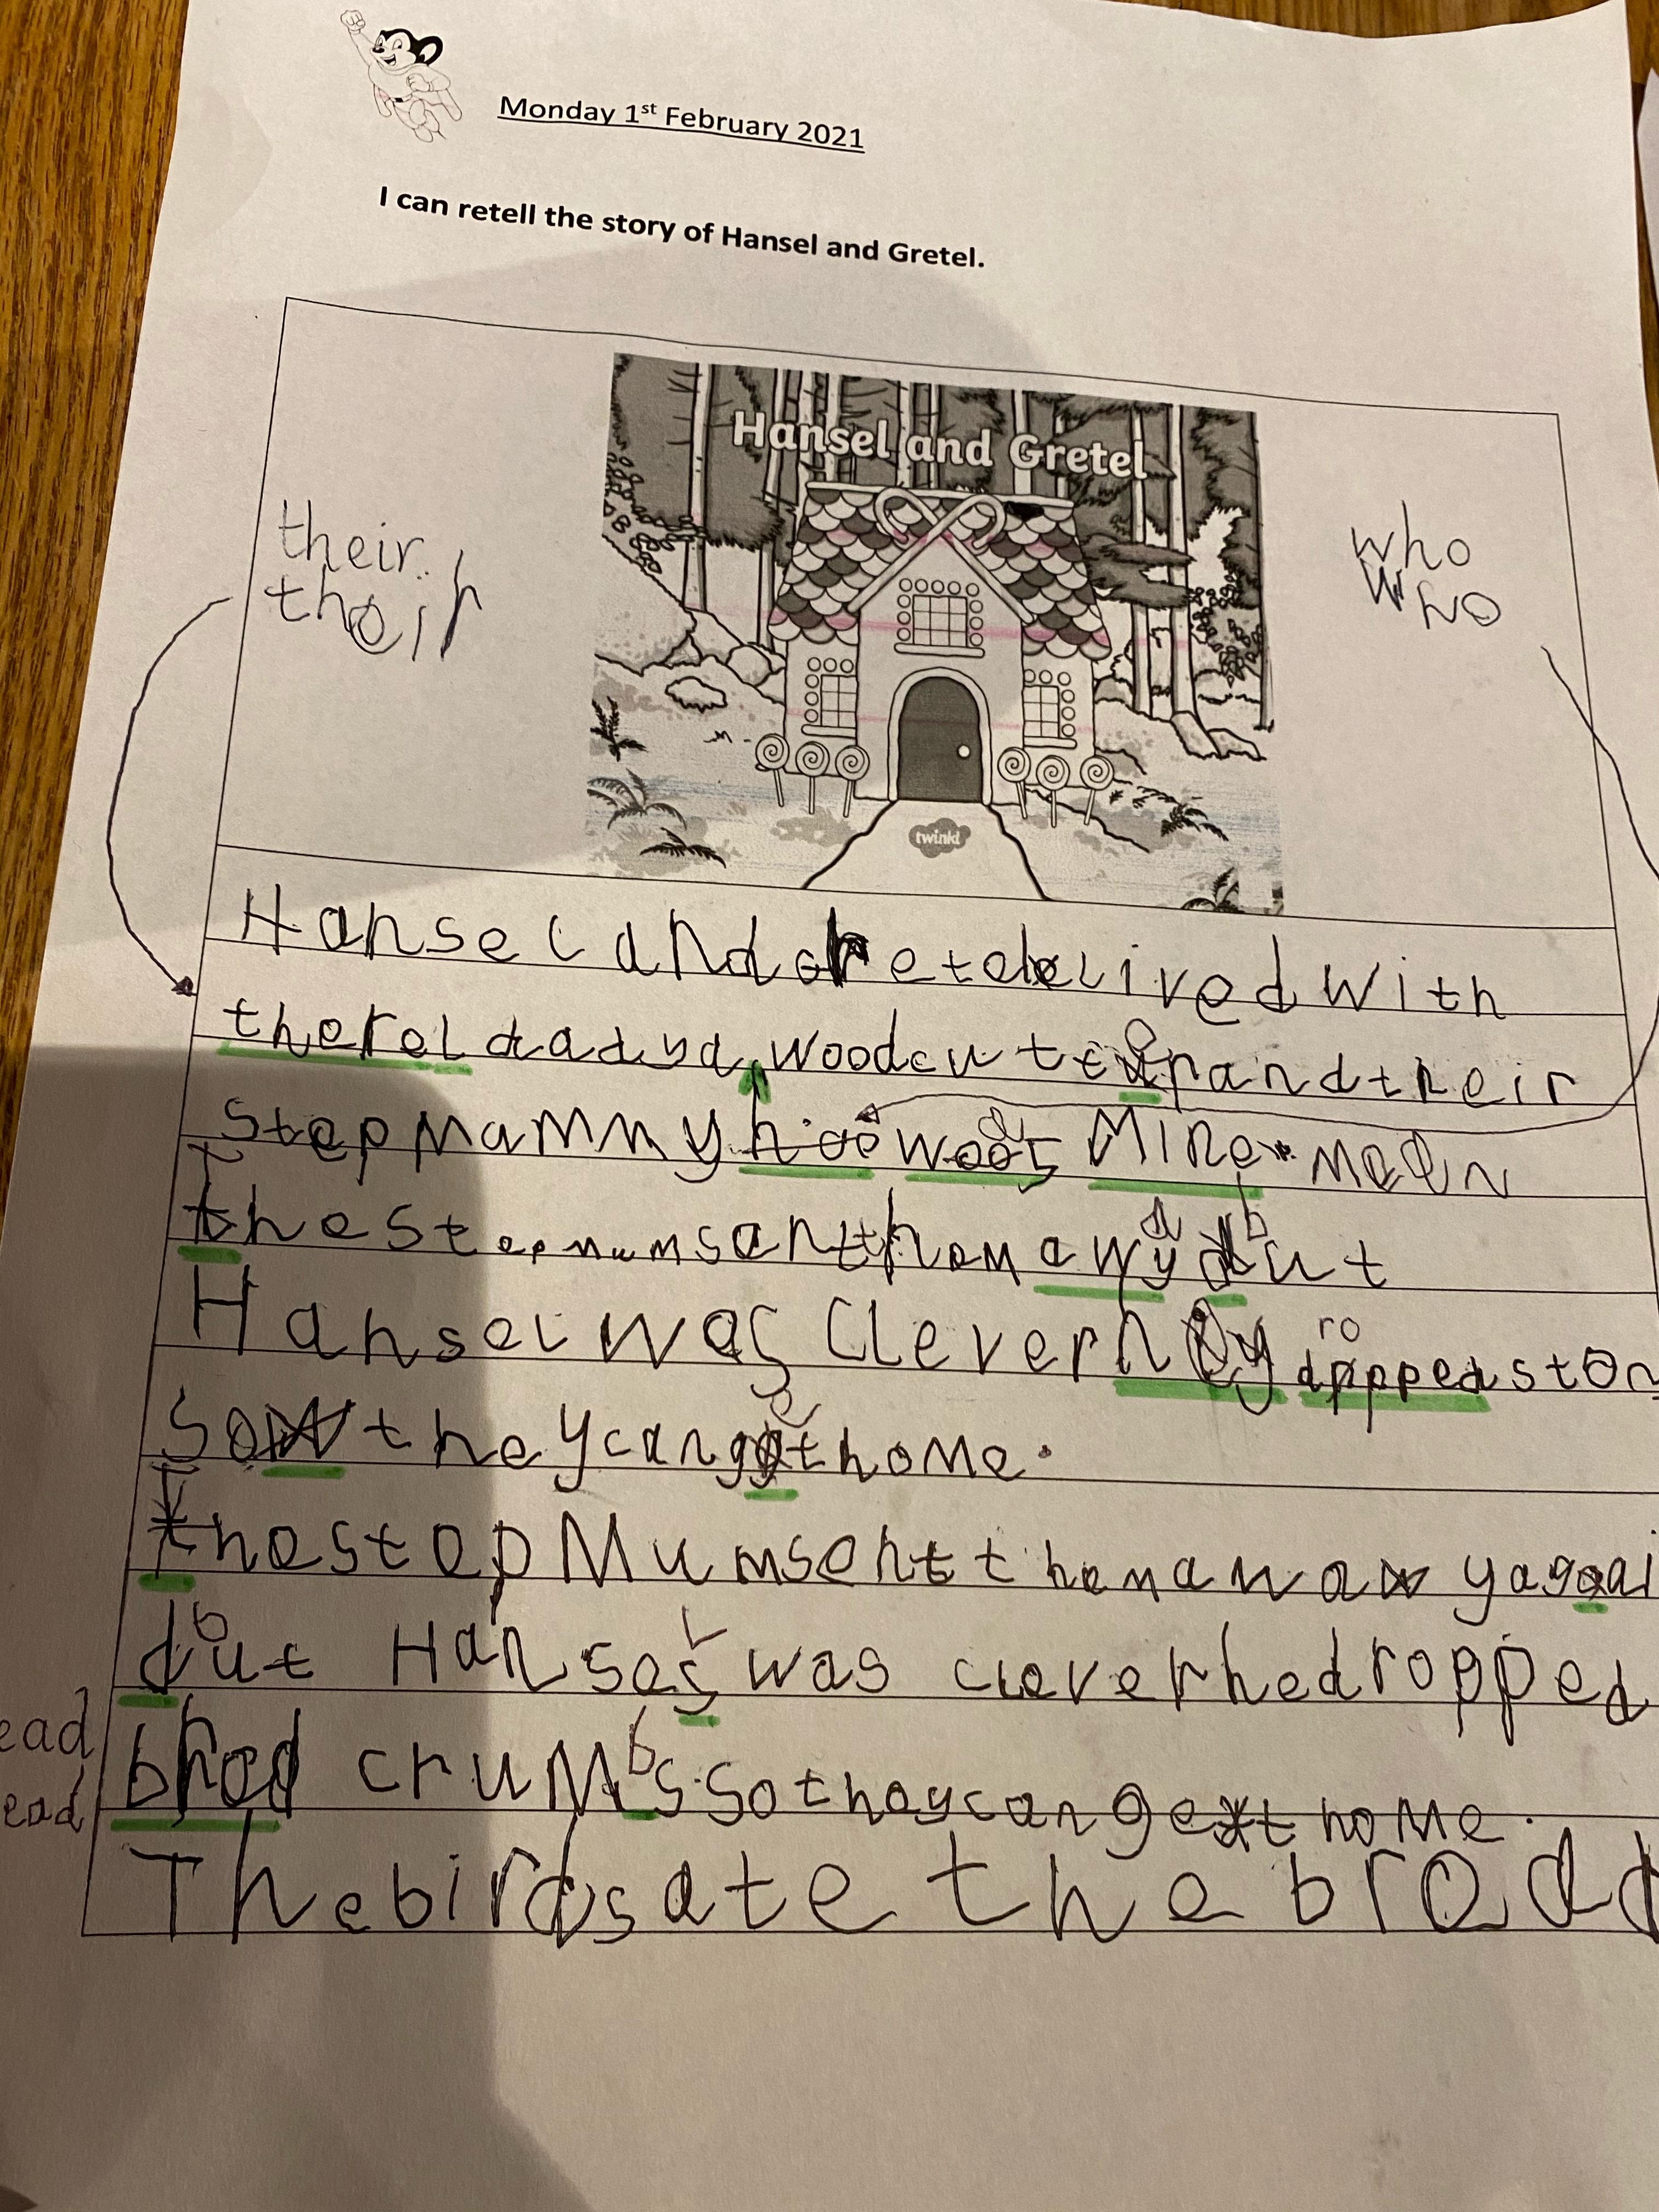 Monday 1st February 2021
I can retell the story of Hansel and Gretel.
Hansel and Gretel
their
their
who
who
twinkl
Hansel and Gretel lived with
therel daddy a woodcutter and their
step Mummy hoo was Mine mean
the step mum sent them away but
Hansel was Clever hey dropped ston
so they can get home.
The step Mum sent them a way agai
but Hansel was clever he dropped
ead
bred crumbs so they can get home.
ead
The birds ate the bread